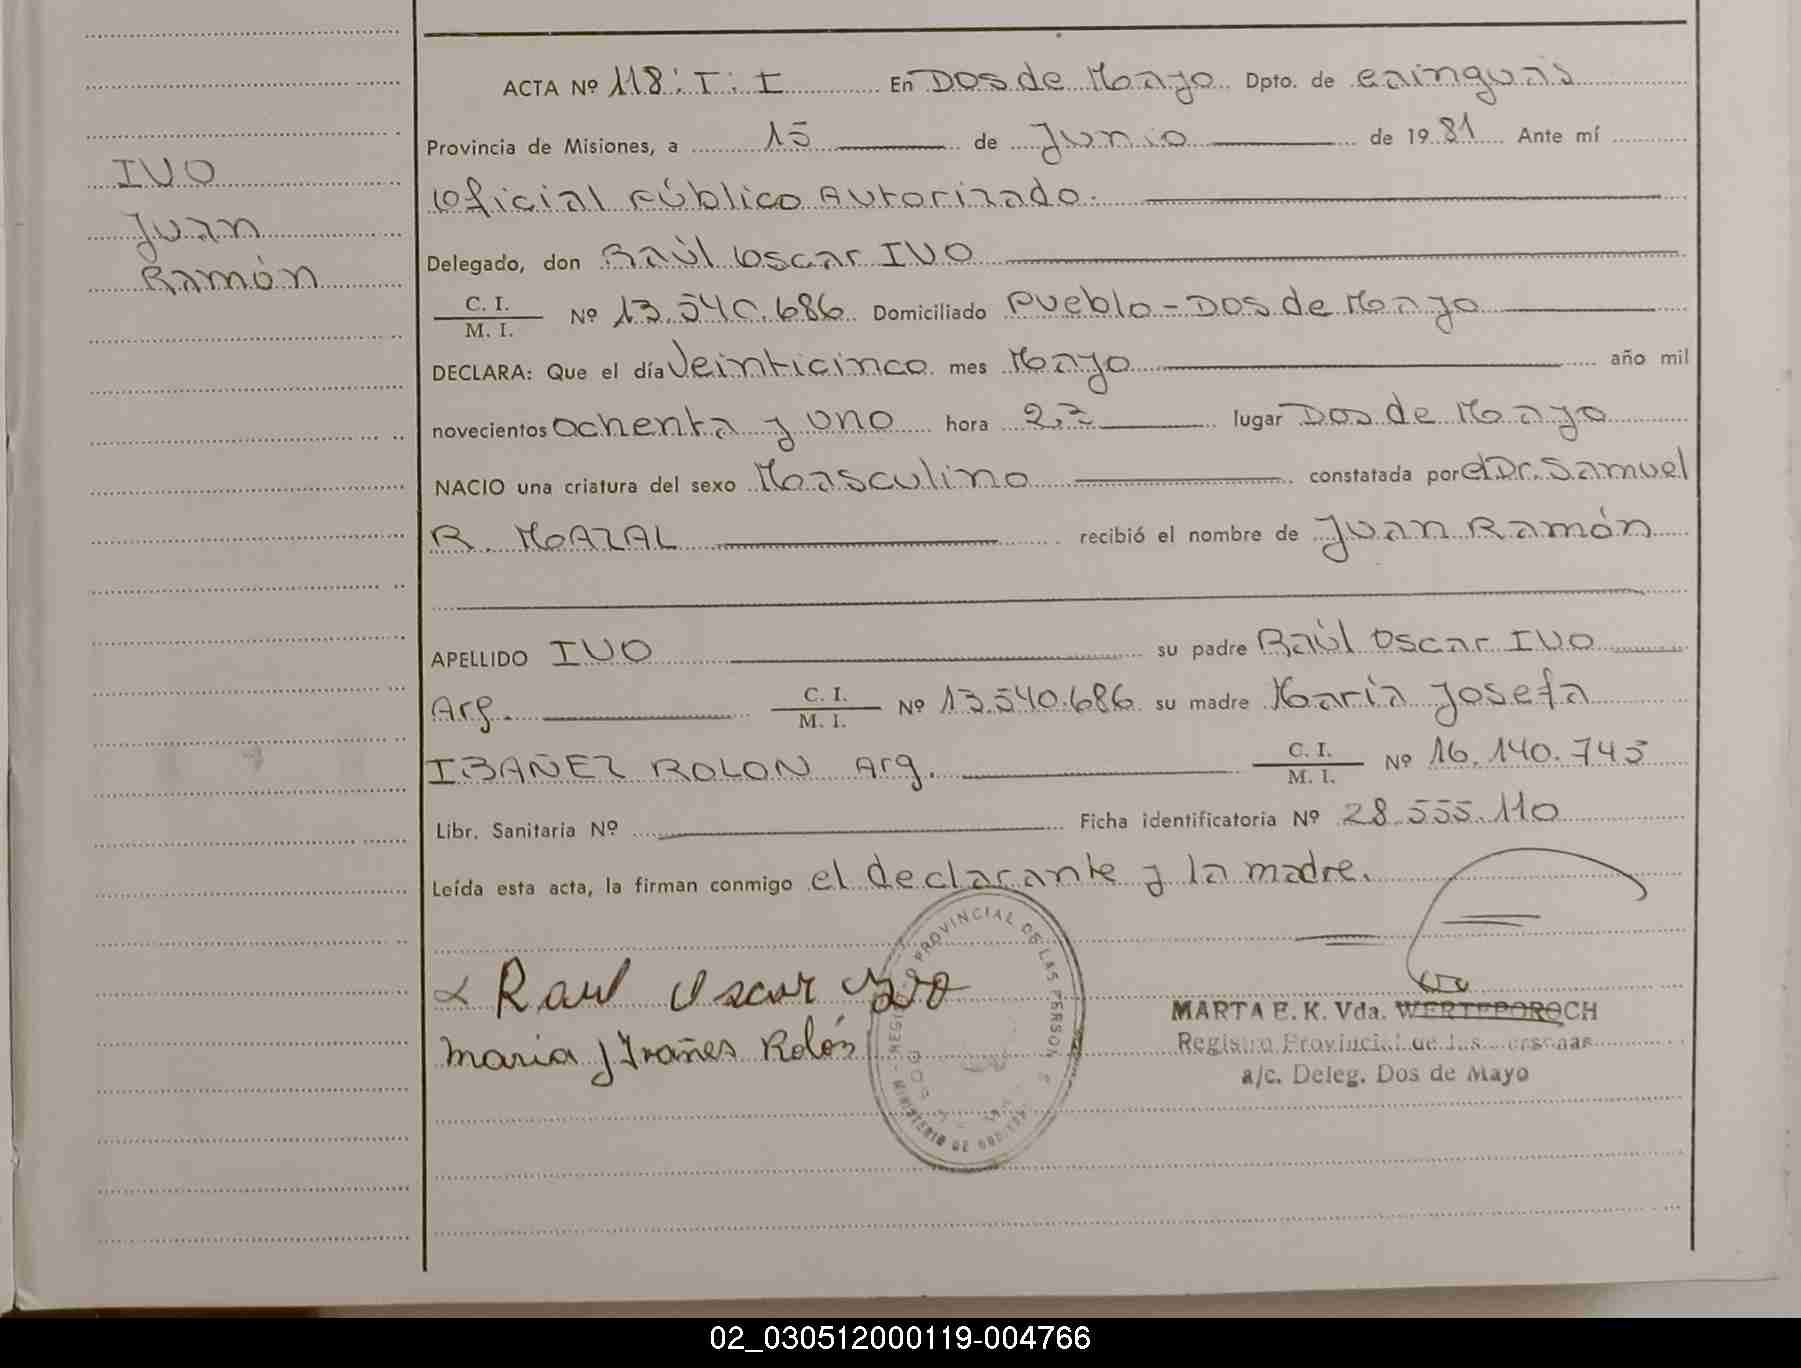 IVO
Juan
Ramón
ACTA Nº 118: I: I En Dos de Mayo Dpto. de Cainguás
Provincia de Misiones, a 15 de Junio de 1981 Ante mí
Oficial Público Autorizado.
Delegado, don Raúl Oscar IVO
C. I.
M. I. Nº 13.540.686 Domiciliado Pueblo - Dos de Mayo
DECLARA: Que el día Veinticinco mes Mayo año mil
novecientos Ochenta y uno hora lugar Dos de Mayo
NACIO una criatura del sexo Masculino constatada por el Dr. Samuel
R. MAZAL recibió el nombre de Juan Ramón
APELLIDO IVO su padre Raúl Oscar IVO
Arg. C. I.
M. I. Nº 13.540.686 su madre María Josefa
IBAÑEZ ROLON Arg. C. I.
M. I. Nº 16.140.743
Libr. Sanitaria Nº Ficha identificatoria Nº 28.555.110
Leída esta acta, la firman conmigo el declarante y la madre.
Raul Oscar Ivo
Maria J Ibañes Rolón
PROVINCIAL DE LAS PERSON
MINISTERIO DE
MARTA E. K. Vda. WERTEPOROCH
Registro Provincial de las Personas
a/c. Deleg. Dos de Mayo
02_030512000119-004766